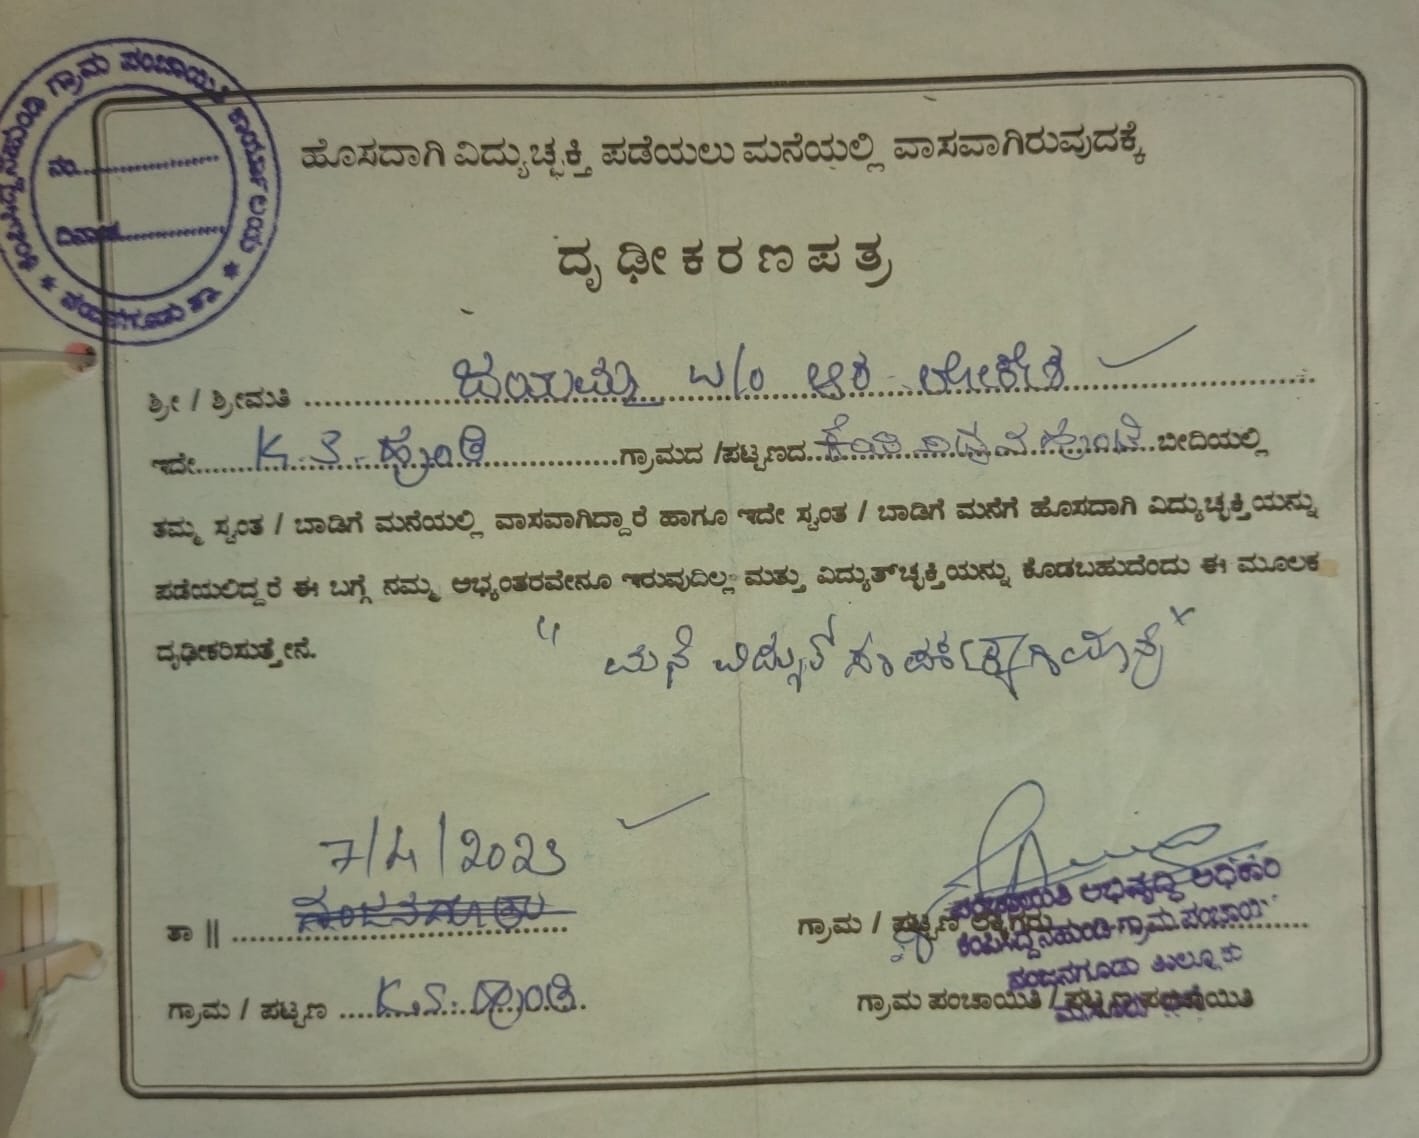 ಗ್ರಾಮ ಪಂಚಾಯಿತಿ ಕಾರ್ಯಾಲಯ
ನಂ.
ದಿನಾಂಕ
ನಂಜನಗೂಡು ತಾ.
ಹೊಸದಾಗಿ ವಿದ್ಯುಚ್ಛಕ್ತಿ ಪಡೆಯಲು ಮನೆಯಲ್ಲಿ ವಾಸವಾಗಿರುವುದಕ್ಕೆ
ದೃಢೀಕರಣಪತ್ರ
ಶ್ರೀ / ಶ್ರೀಮತಿ ಜಯಮ್ಮ W/O ಆರ್ ಲೋಕೇಶ
ಇದೇ K.S. ಹುಂಡಿ ಗ್ರಾಮದ / ಪಟ್ಟಣದ ಬೀದಿಯಲ್ಲಿ
ತಮ್ಮ ಸ್ವಂತ / ಬಾಡಿಗೆ ಮನೆಯಲ್ಲಿ ವಾಸವಾಗಿದ್ದಾರೆ ಹಾಗೂ ಇದೇ ಸ್ವಂತ / ಬಾಡಿಗೆ ಮನೆಗೆ ಹೊಸದಾಗಿ ವಿದ್ಯುಚ್ಛಕ್ತಿಯನ್ನು
ಪಡೆಯಲಿದ್ದರೆ ಈ ಬಗ್ಗೆ ನಮ್ಮ ಅಭ್ಯಂತರವೇನೂ ಇರುವುದಿಲ್ಲ ಮತ್ತು ವಿದ್ಯುತ್‌ಚ್ಛಕ್ತಿಯನ್ನು ಕೊಡಬಹುದೆಂದು ಈ ಮೂಲಕ
ದೃಢೀಕರಿಸುತ್ತೇನೆ.
"ಮನೆ ವಿದ್ಯುತ್ ಮಾತ್ರ"
7/4/2023
ತಾ ||
ಗ್ರಾಮ / ಪಟ್ಟಣ
ಪಂಚಾಯಿತಿ ಅಭಿವೃದ್ಧಿ ಅಧಿಕಾರಿ
ಗ್ರಾಮ ಪಂಚಾಯಿತಿ
ನಂಜನಗೂಡು ತಾಲ್ಲೂಕು
ಗ್ರಾಮ / ಪಟ್ಟಣ K.S. ಹುಂಡಿ.
ಗ್ರಾಮ ಪಂಚಾಯಿತಿ / ಪಟ್ಟಣ ಪಂಚಾಯಿತಿ